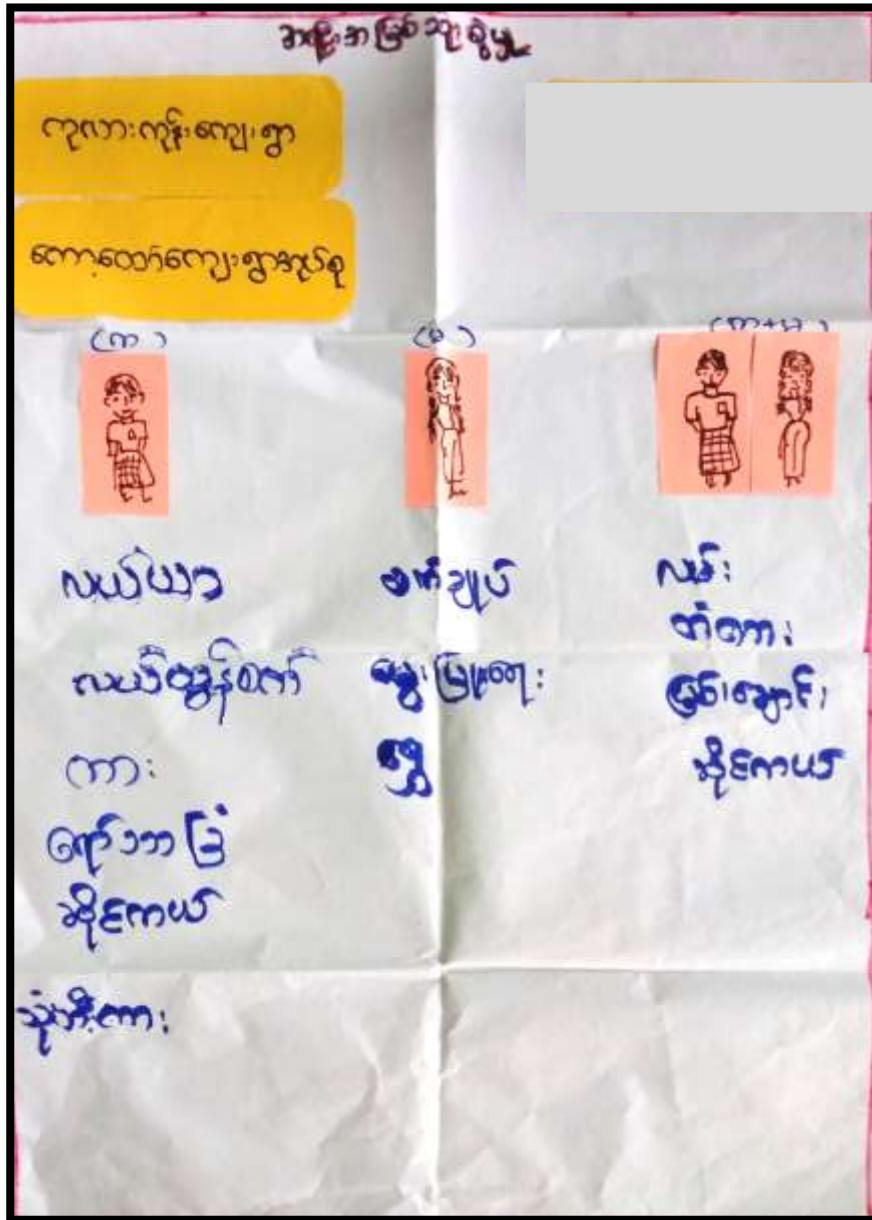 အရင်းအမြစ်သုံးစွဲမှု
ကုလားကုန်းကျေးရွာ
ကော့ထော်ကျေးရွာအုပ်စု
(ကျ)
(မ)
(ကျ+မ)
လယ်ယာ
လယ်ထွန်စက်
ကား
ရော်ဘာခြံ
ဆိုင်ကယ်
သုံးဘီးကား
စက်ချုပ်
မွေးမြူရေး
ရွှေ
လမ်း
တံတား
မြစ်ချောင်း
ဆိုင်ကယ်